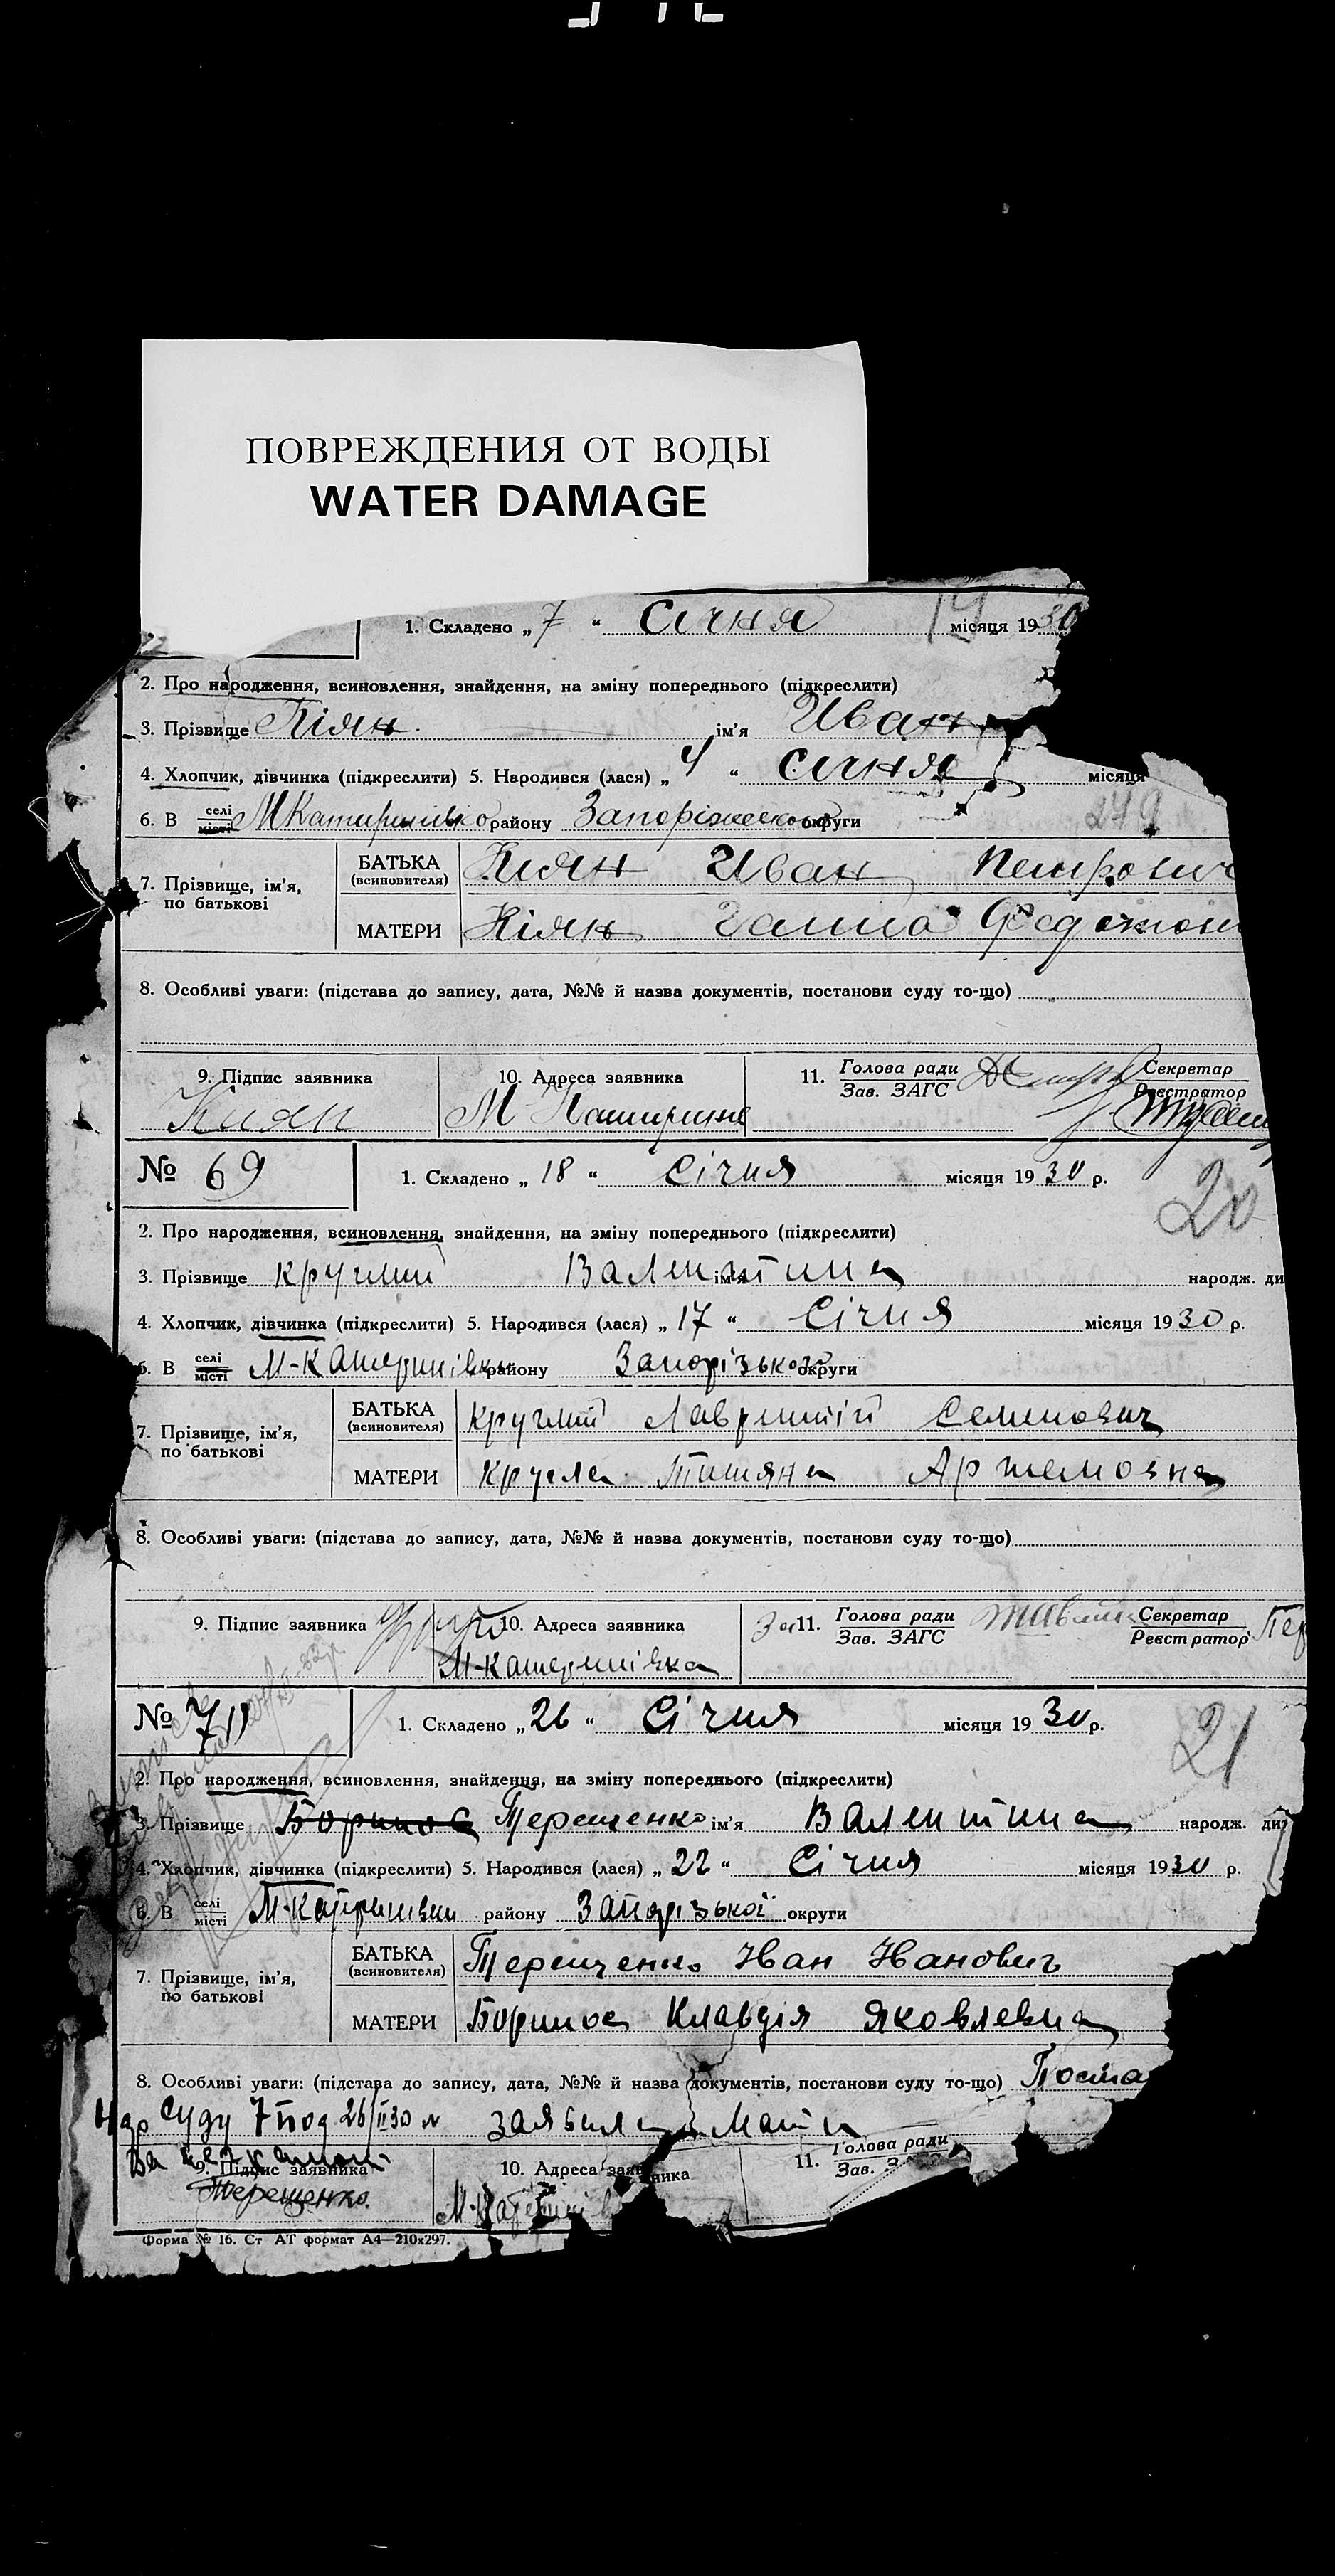 ПОВРЕЖДЕНИЯ ОТ ВОДЫ
WATER DAMAGE
1. Складено „ 7 “ Січня місяця 1930
2. Про народження, всиновлення, знайдення, на зміну попереднього (підкреслити)
3. Прізвище Кіян ім’я Иван
4. Хлопчик, дівчинка (підкреслити) 5. Народився (лася) „ 4 “ Січня місяця
6. В селі місті району округи
249
7. Прізвище, ім’я, по батькові
БАТЬКА (всиновителя) Киян Иван Петрович
МАТЕРИ Кіян Галина
8. Особливі уваги: (підстава до запису, дата, №№ й назва документів, постанови суду то-що)
9. Підпис заявника 10. Адреса заявника 11. Голова ради Зав. ЗАГС Секретар Реєстратор
Киян
№ 69 1. Складено „ 18 “ Січня місяця 1930 р.
20
2. Про народження, всиновлення, знайдення, на зміну попереднього (підкреслити)
3. Прізвище Круглий ім’я Валентина народж. ди
4. Хлопчик, дівчинка (підкреслити) 5. Народився (лася) „ 17 “ Січня місяця 1930 р.
6. В селі місті М-Катеринівки району Запорізького округи
7. Прізвище, ім’я, по батькові
БАТЬКА (всиновителя) Круглий Лаврентій Семенович
МАТЕРИ Кругла Титяна Артемовна
8. Особливі уваги: (підстава до запису, дата, №№ й назва документів, постанови суду то-що)
9. Підпис заявника 10. Адреса заявника За 11. Голова ради Зав. ЗАГС Секретар Реєстратор
М-Катеринівка
№ 70 1. Складено „ 26 “ Січня місяця 1930 р.
21
2. Про народження, всиновлення, знайдення, на зміну попереднього (підкреслити)
3. Прізвище Терещенко ім’я Валентина народж. ди
4. Хлопчик, дівчинка (підкреслити) 5. Народився (лася) „ 22 “ Січня місяця 1930 р.
6. В селі місті М-Катеринівки району Запорізької округи
7. Прізвище, ім’я, по батькові
БАТЬКА (всиновителя) Терещенко Иван Иванович
МАТЕРИ Клавдія Яковлевна
8. Особливі уваги: (підстава до запису, дата, №№ й назва документів, постанови суду то-що) Поста
суду 26/II 30 заявила Мати
9. Підпис заявника 10. Адреса заявника 11. Голова ради Зав. З
Терещенко.
Форма № 16. Ст АТ формат А4—210х297.